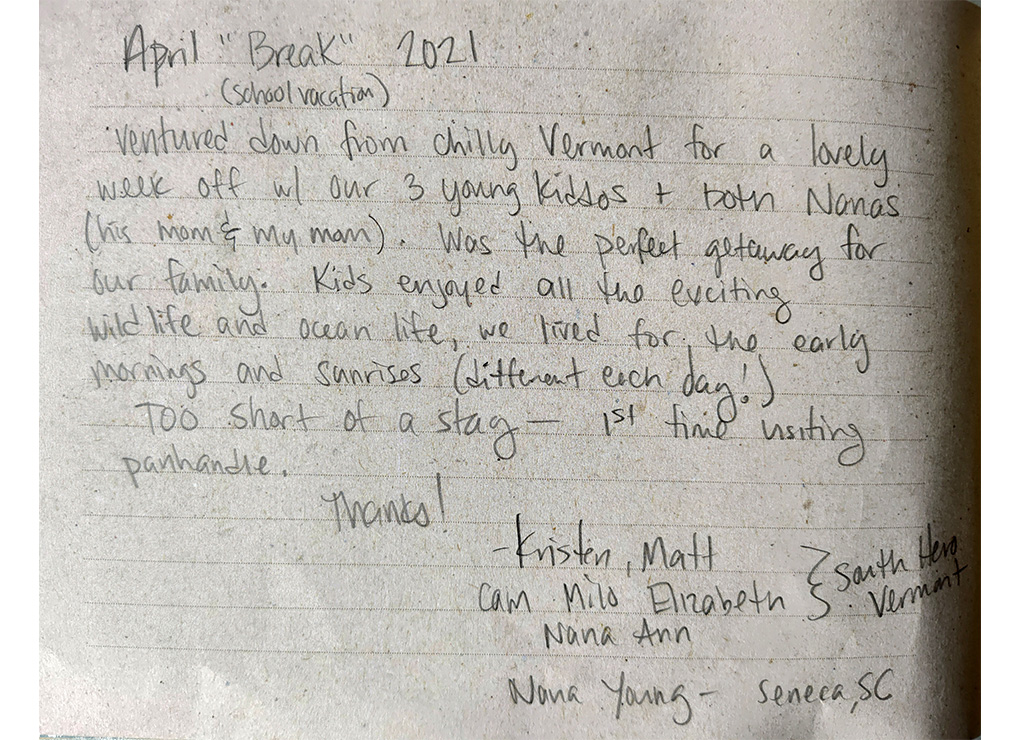 April "Break" 2021
(school vacation)
ventured down from chilly Vermont for a lovely
week off w/ our 3 young kiddos + both Nanas
(his mom & my mom). Was the perfect getaway for
our family. Kids enjoyed all the exciting
wildlife and ocean life, we lived for the early
mornings and sunrises (different each day!)
Too short of a stay — 1st time visiting
panhandle.
Thanks!
- Kristen, Matt
Cam Milo Elizabeth } South Hero
Vermont
Nana Ann
Nana Young - Seneca, SC